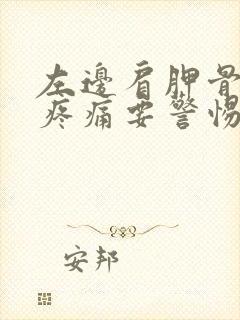 左邊肩胛骨
疼痛要警惕
安邦